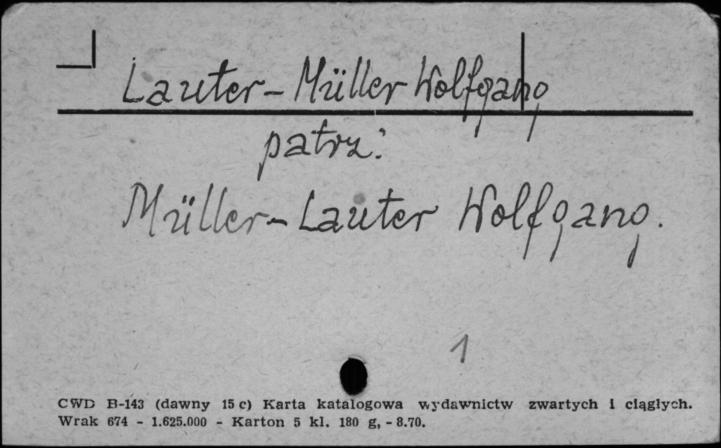 Lauter-Müller Wolfgang
patrz:
Müller-Lauter Wolfgang.
1
CWD B-143 (dawny 15 c) Karta katalogowa wydawnictw zwartych i ciągłych.
Wrak 674 - 1.625.000 - Karton 5 kl. 180 g, - 8.70.